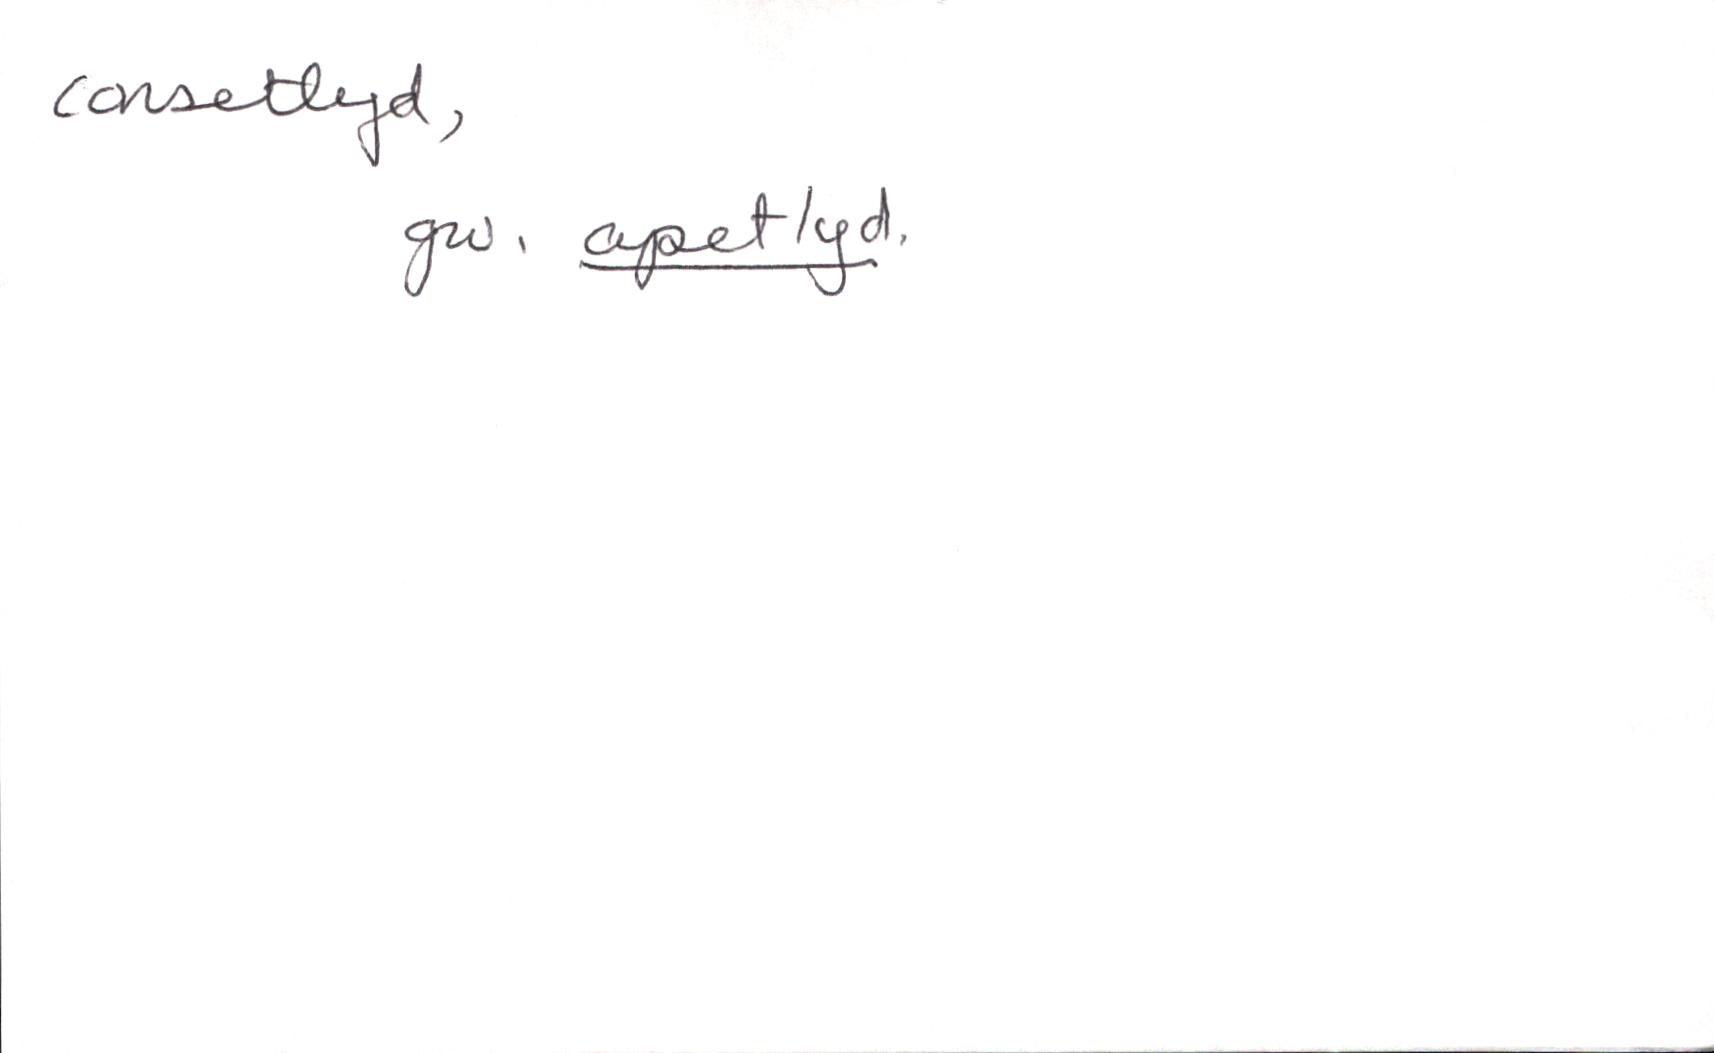 consetlyd,
gw. apetlyd.